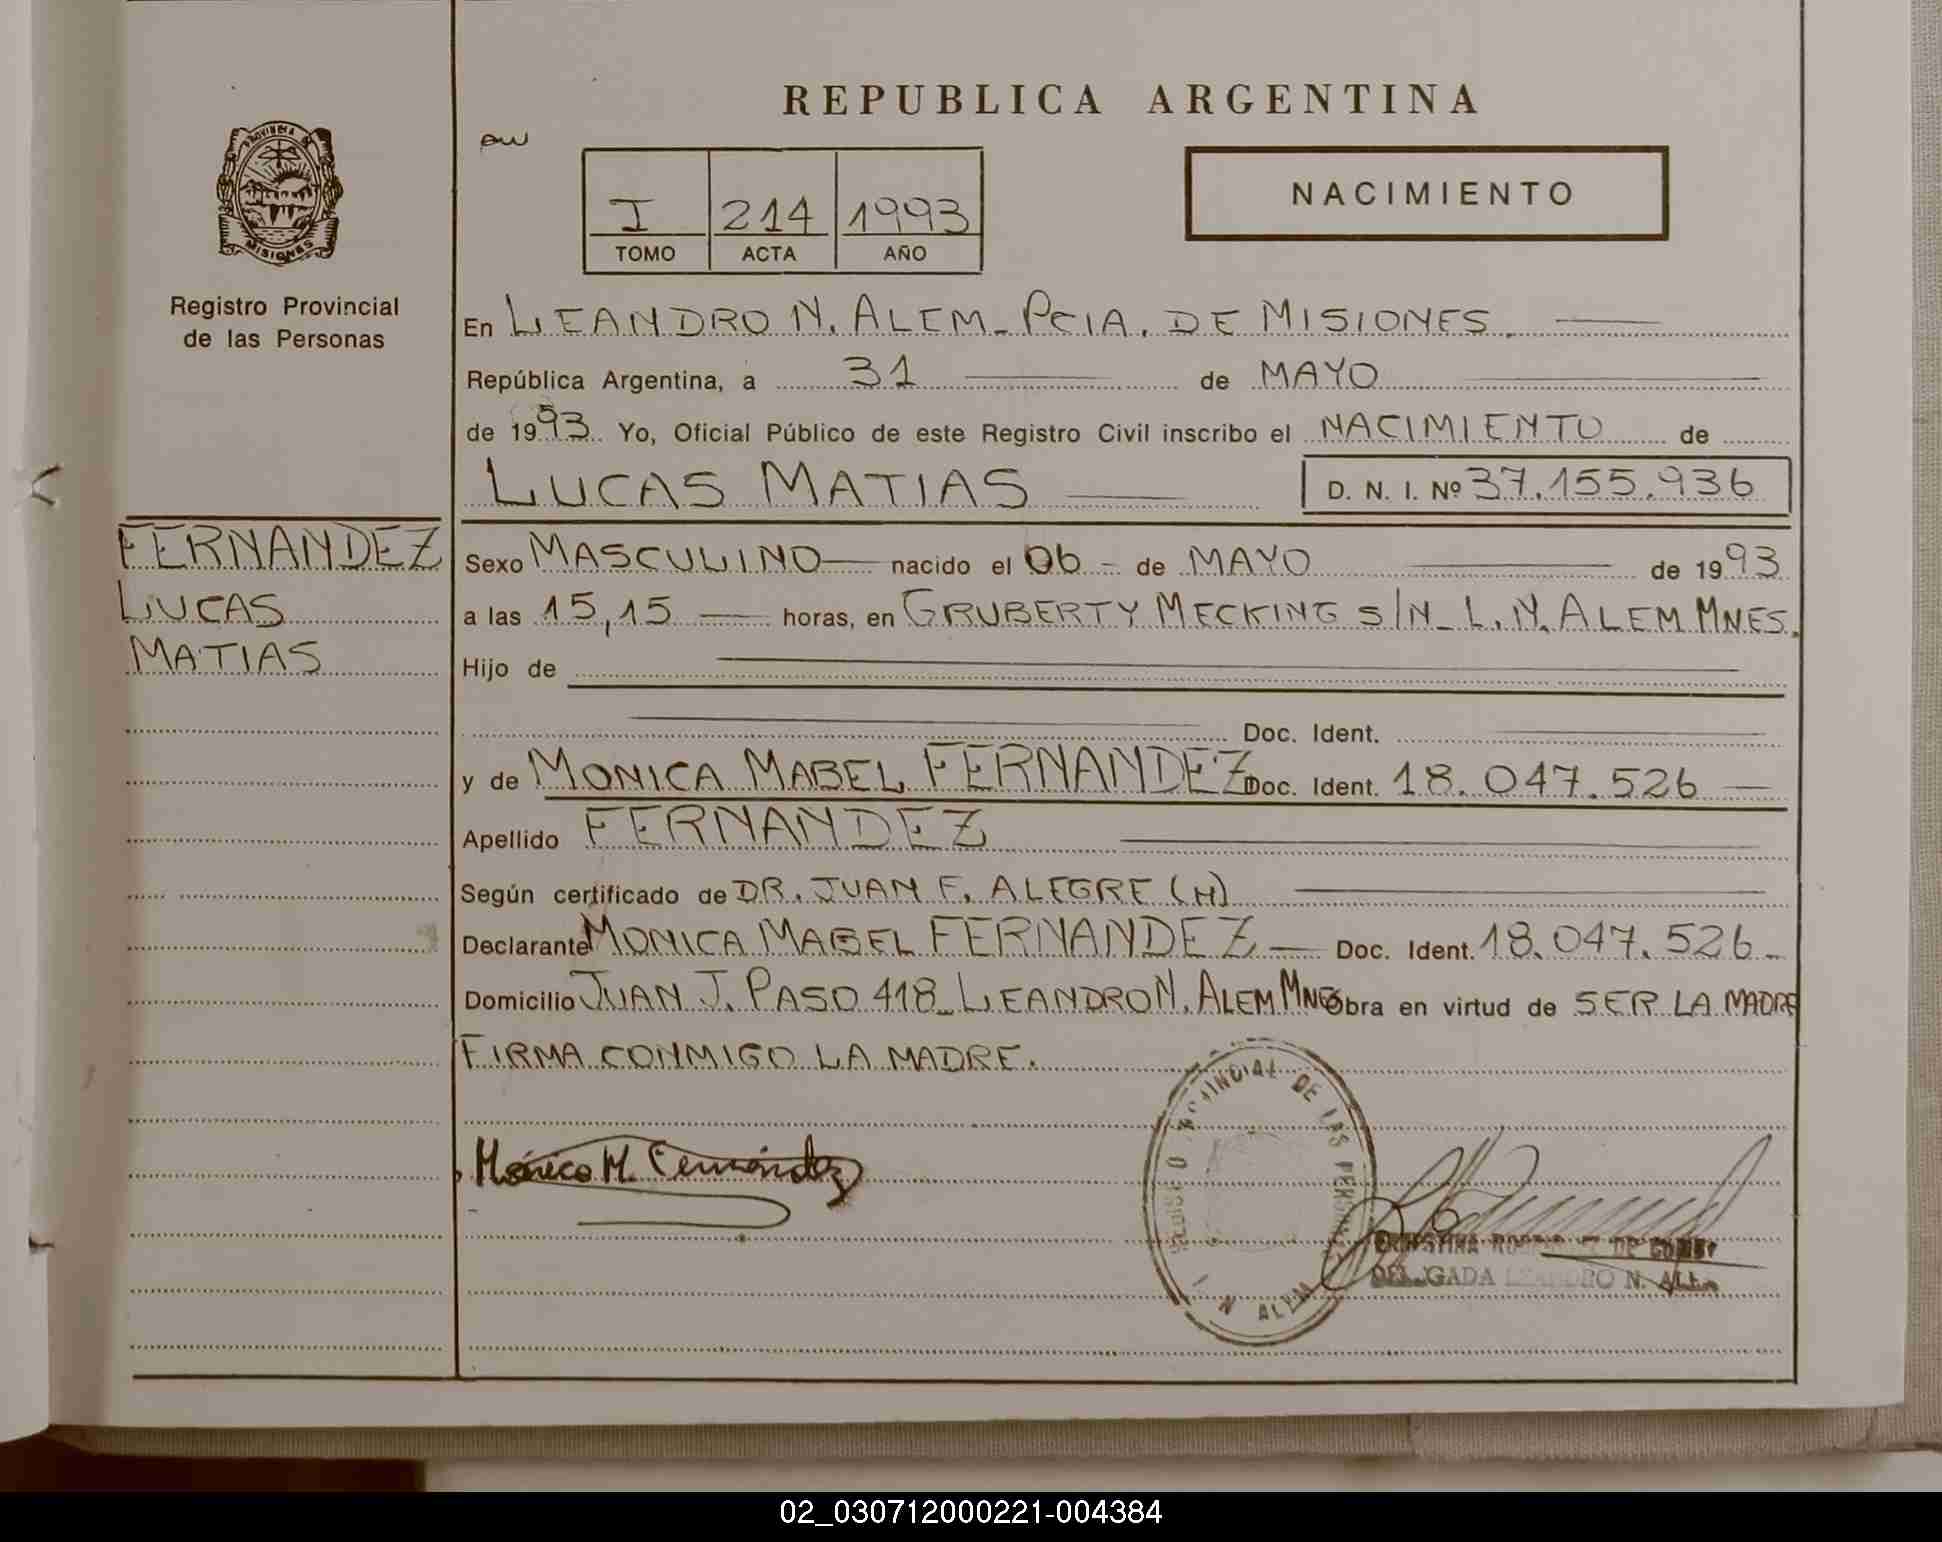 REPUBLICA ARGENTINA
PROVINCIA DE
MISIONES
Registro Provincial
de las Personas
I 214 1993
TOMO ACTA AÑO
NACIMIENTO
En LEANDRO N. ALEM - PCIA. DE MISIONES.
República Argentina, a 31 de MAYO
de 1993 Yo, Oficial Público de este Registro Civil inscribo el NACIMIENTO de
LUCAS MATIAS D. N. I. Nº 37.155.936
FERNANDEZ
LUCAS
MATIAS
Sexo MASCULINO nacido el 06 - de MAYO de 1993
a las 15,15 horas, en GRUBERTY MECKING S/N - L. N. ALEM MNES.
Hijo de
Doc. Ident.
y de MONICA MABEL FERNANDEZ Doc. Ident. 18.047.526
Apellido FERNANDEZ
Según certificado de DR. JUAN F. ALEGRE (H)
Declarante MONICA MABEL FERNANDEZ - Doc. Ident. 18.047.526 -
Domicilio JUAN J. PASO 418 - LEANDRO N. ALEM MNES Obra en virtud de SER LA MADRE
FIRMA CONMIGO LA MADRE.
Mónica M. Fernández
PROVINCIAL DE LAS
N ALEM
DELEGADA LEANDRO N. ALEM
02_030712000221-004384